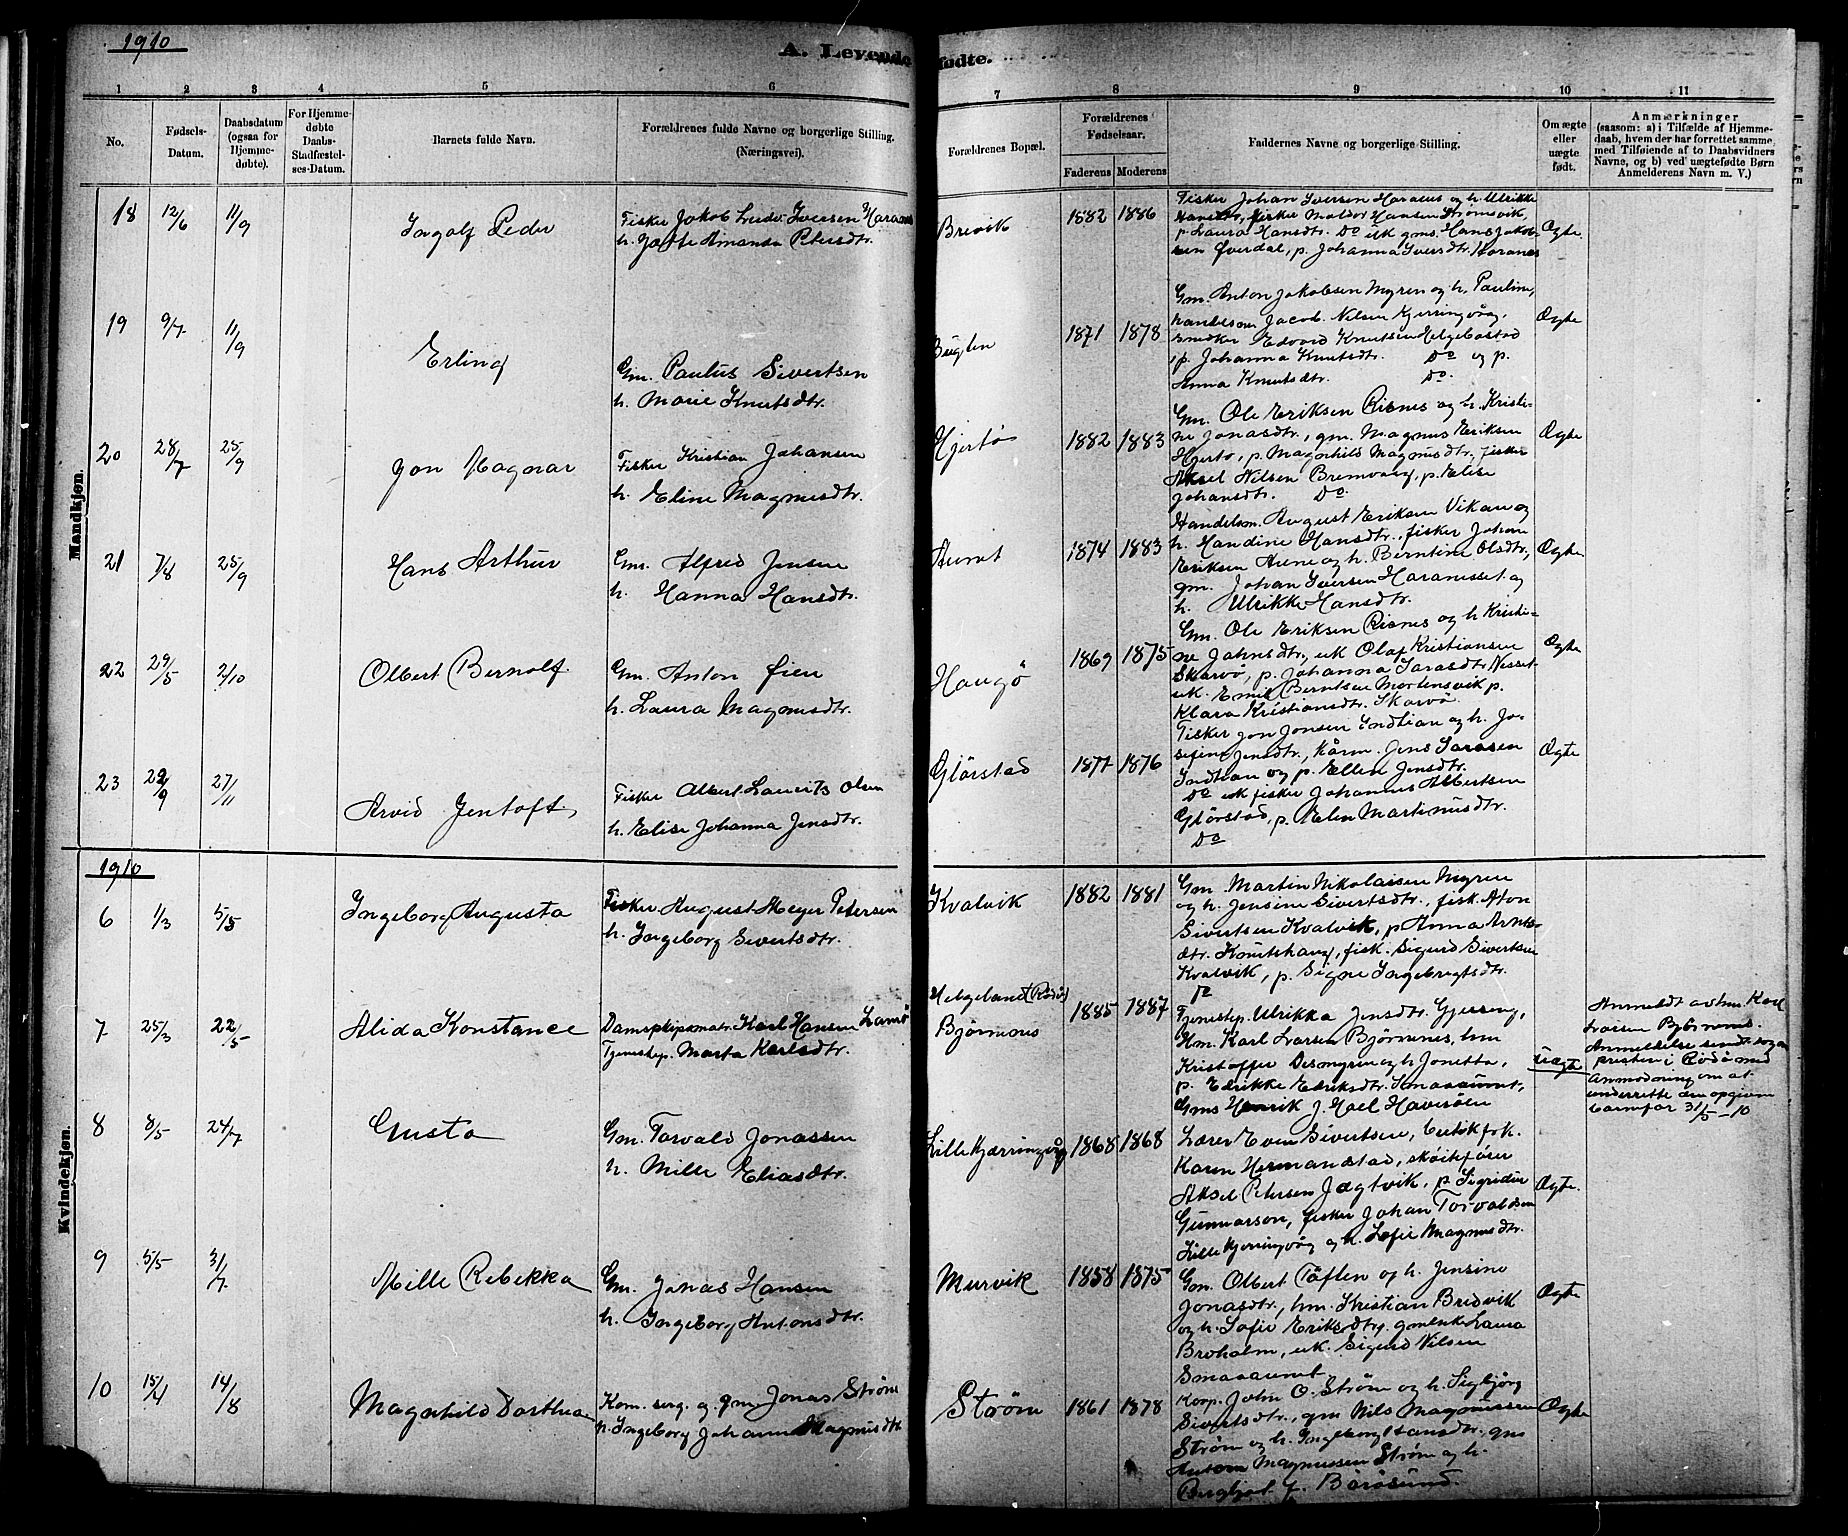 1910
A. Levende fødte.
1 2 3 4 5 6 7 8 9 10 11
No.
Fødsels-Datum.
Daabsdatum (ogsaa for Hjemmedøbte).
For Hjemmedøbte Daabs-Stadfæstelses-Datum.
Barnets fulde Navn.
Forældrenes fulde Navne og borgerlige Stilling. (Næringsvei).
Forældrenes Bopæl.
Forældrenes Fødselsaar.
Faderens Moderens
Faddernes Navne og borgerlige Stilling.
Om ægte eller uægte født.
Anmærkninger
(saasom: a) i Tilfælde af Hjemmedaab, hvem der har forrettet samme, med Tilføiende af to Daabsvidners Navne, og b) ved uægtefødte Børn Anmelderens Navn m. V.)
Mandkjøn.
18 12/6 11/9 Ingolf Peder
Fisker Jakob Iversen
h. Amanda Petersdtr.
Brevik 1882 1886
Fisker Johan Iversen og h. Ulrikke
fisker Hansen Strømsvik,
p. Laura Hansdtr. Do uk gms. Hans Jakob-
sen Øverdal, p. Johanna Iversdtr.
Ægte
19 9/7 11/9 Erling
Gm. Paulus Sivertsen
h. Marie Knutsdtr.
1871 1878
Gm. Anton Jakobsen Myren og h. Pauline,
handelsm. Jacob Nilsen Kjerringvåg,
Edvard Knutsen Helgebostad
p. Johanna Knutsdtr. Do og p.
Anna Knutsdtr. Do.
Ægte
20 28/7 25/9 Jon Ragnar
Fisker Kristian Johansen
h. Eline Magnusdtr.
Hjertø 1882 1883
Gm. Ole Eriksen Risnes og h. Kristi-
ne Jonasdtr., gm. Magnus Eriksen
Hjertø, p. Magnhild Magnusdtr., fisker
Aksel Nilsen Bremvåg, p. Elise
Johansdtr. Do.
Ægte
21 7/8 25/9 Hans Arthur
Gm. Alfred Jensen
h. Hanna Hansdtr.
Aunet 1874 1883
Handelsm. August Eriksen Vikan og
h. Handine Hansdtr., fisker Johan
Eriksen Aune og h. Berntine Olsdtr.,
gm. Johan Iversen Haranesset og
h. Ulrikke Hansdtr.
Ægte
22 29/5 2/10 Olbert Bernolf
Gm. Anton Øien
h. Laura Magnusdtr.
Haugø 1869 1875
Gm. Ole Eriksen Risnes og h. Kristi-
ne Jahnsdtr., uk Olaf Kristiansen
Skarvø, p. Johanna Sarasdtr. Nesset
uk. Emil Berntsen Mortensvik p.
Klara Kristiansdtr. Skarvø.
Ægte
23 29/9 27/11 Arvid Jentoft
Fisker Albert Laurits Olsen
h. Elise Johanna Jensdtr.
Glørstad 1877 1876
Fisker Jon Jonsen Indtian og h. Jo-
sefine Jensdtr., Kårm. Jens Sarasen
Indtian og p. Ellen Jensdtr.
Do uk fisker Johannes Albertsen
Glørstad, p. Elen Martinusdtr.
Do
Ægte
1910
Kvindekjøn.
6 1/3 5/5 Ingeborg Augusta
Fisker August Meyer Petersen
h. Ingeborg Sivertsdtr.
Kvalvik 1882 1881
Gm. Martin Nikolaisen Myren
og h. Jensine Sivertsdtr., fisk. Anton
Sivertsen Kvalvik, p. Anna Arnts-
dtr. Knutshaug, fisk. Sigurd Sivertsen
Kvalvik, p. Signe Ingebrigtsdtr.
Do
7 25/3 22/5 Alida Konstance
Dampskipsmatr. Karl Hansen
Tjenestep. Marta Karlsdtr.
Helgeland (Rødø)
Bjørnnes 1885 1887
Tjenestep. Ulrikka Jensdtr. Gjessing,
Hm. Karl Larsen Bjørnnes, hm
Kristoffer Desmyren og h. Jonetta,
p. Edrikke Edriksdtr. Smaaaunet,
Gms Henrik J. Moel Havnsøen
Uægte
Anmeldt av hm. Karl
Larsen Bjørnnes.
Anmeldelse sendt sogne
presten i Rødø med
anmodning om at
underrette den opgivne
barnefar 31/5-10
8 8/5 24/7 Gusta
Gm. Torvald Jonassen
h. Mille Eliasdtr.
Lille Kjærringvåg 1868 1868
Lærer Even Sivertsen,
Karen Hermanstad, skøitefører
Aksel Petersen Jægtvik, p. Sigridur
Gunnarson, fisker Johan Torvaldsen
Lille Kjerringvåg og h. Sofie Magnusdtr.
Ægte.
9 5/5 31/7 Mille Rebekka
Gm. Jonas Hansen
h. Ingeborg Antonsdtr.
Murvik 1858 1875
Gm. Olbert Tøften og h. Jensine
Jonasdtr., hm. Kristian Bredvik
og h. Sofie Eriksdtr., Laura
Broholm, uk. Sigurd Nilsen
Smaaaunet
Ægte
10 15/4 14/8 Magnhild Dorthea
Kom. serg. og gm Jonas Strøm
h. Ingeborg Johanna Magnusdtr.
Strøm 1861 1878
Korp. John O. Strøm og h. Sigbjørg
Sivertsdtr., gm Nils Magnussen
Strøm og h. Ingeborg Hansdtr. gm
Anton Magnussen Strøm og h.
Bergljot f. Børøsund.
Ægte